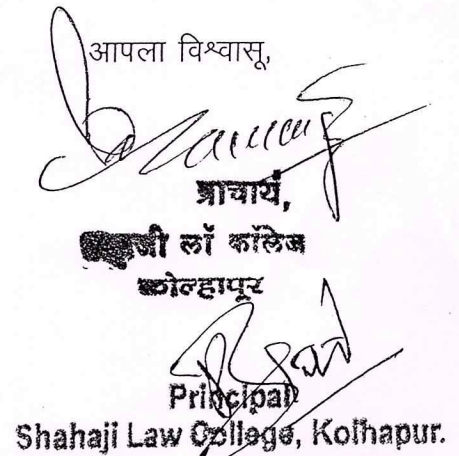 आपला विश्वासू,
प्राचार्य,
शहाजी लॉ कॉलेज
कोल्हापूर
Principal
Shahaji Law College, Kolhapur.